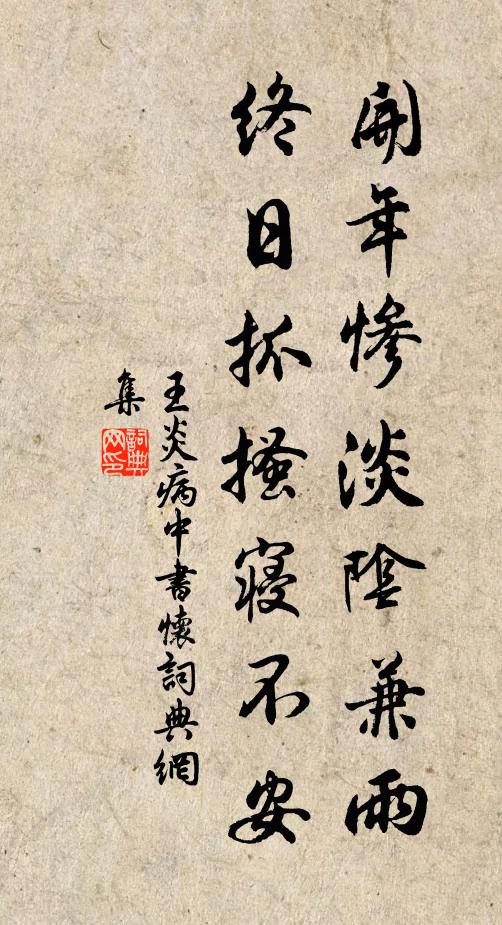 開年慘淡陰兼雨
終日抓搔寝不安
王炎病中書懷詞典網
集
詞典
网印